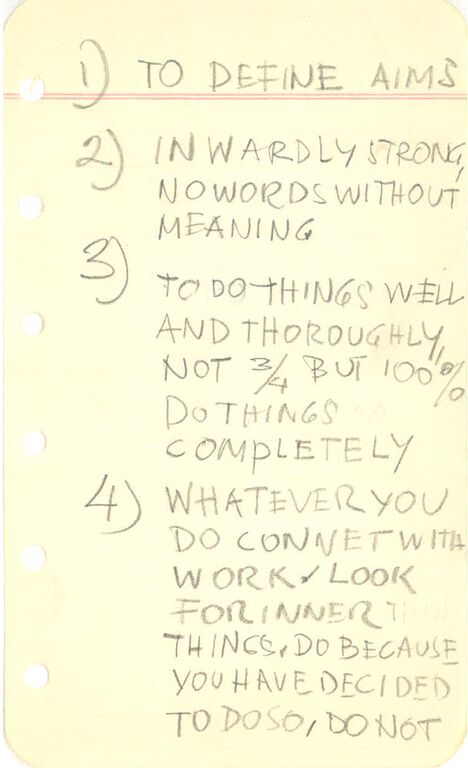 1) TO DEFINE AIMS
2) INWARDLY STRONG,
NO WORDS WITHOUT
MEANING
3) TO DO THINGS WELL
AND THOROUGHLY,
NOT 3/4 BUT 100%
DO THINGS
COMPLETELY
4) WHATEVER YOU
DO CONNET WITH
WORK, LOOK
FOR INNER
THINGS, DO BECAUSE
YOU HAVE DECIDED
TO DO SO, DO NOT